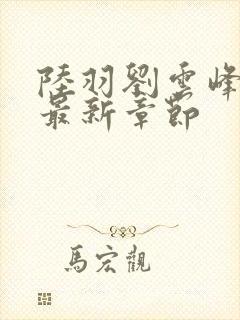 陸羽劉雲峰
最新章節
馬宏觀